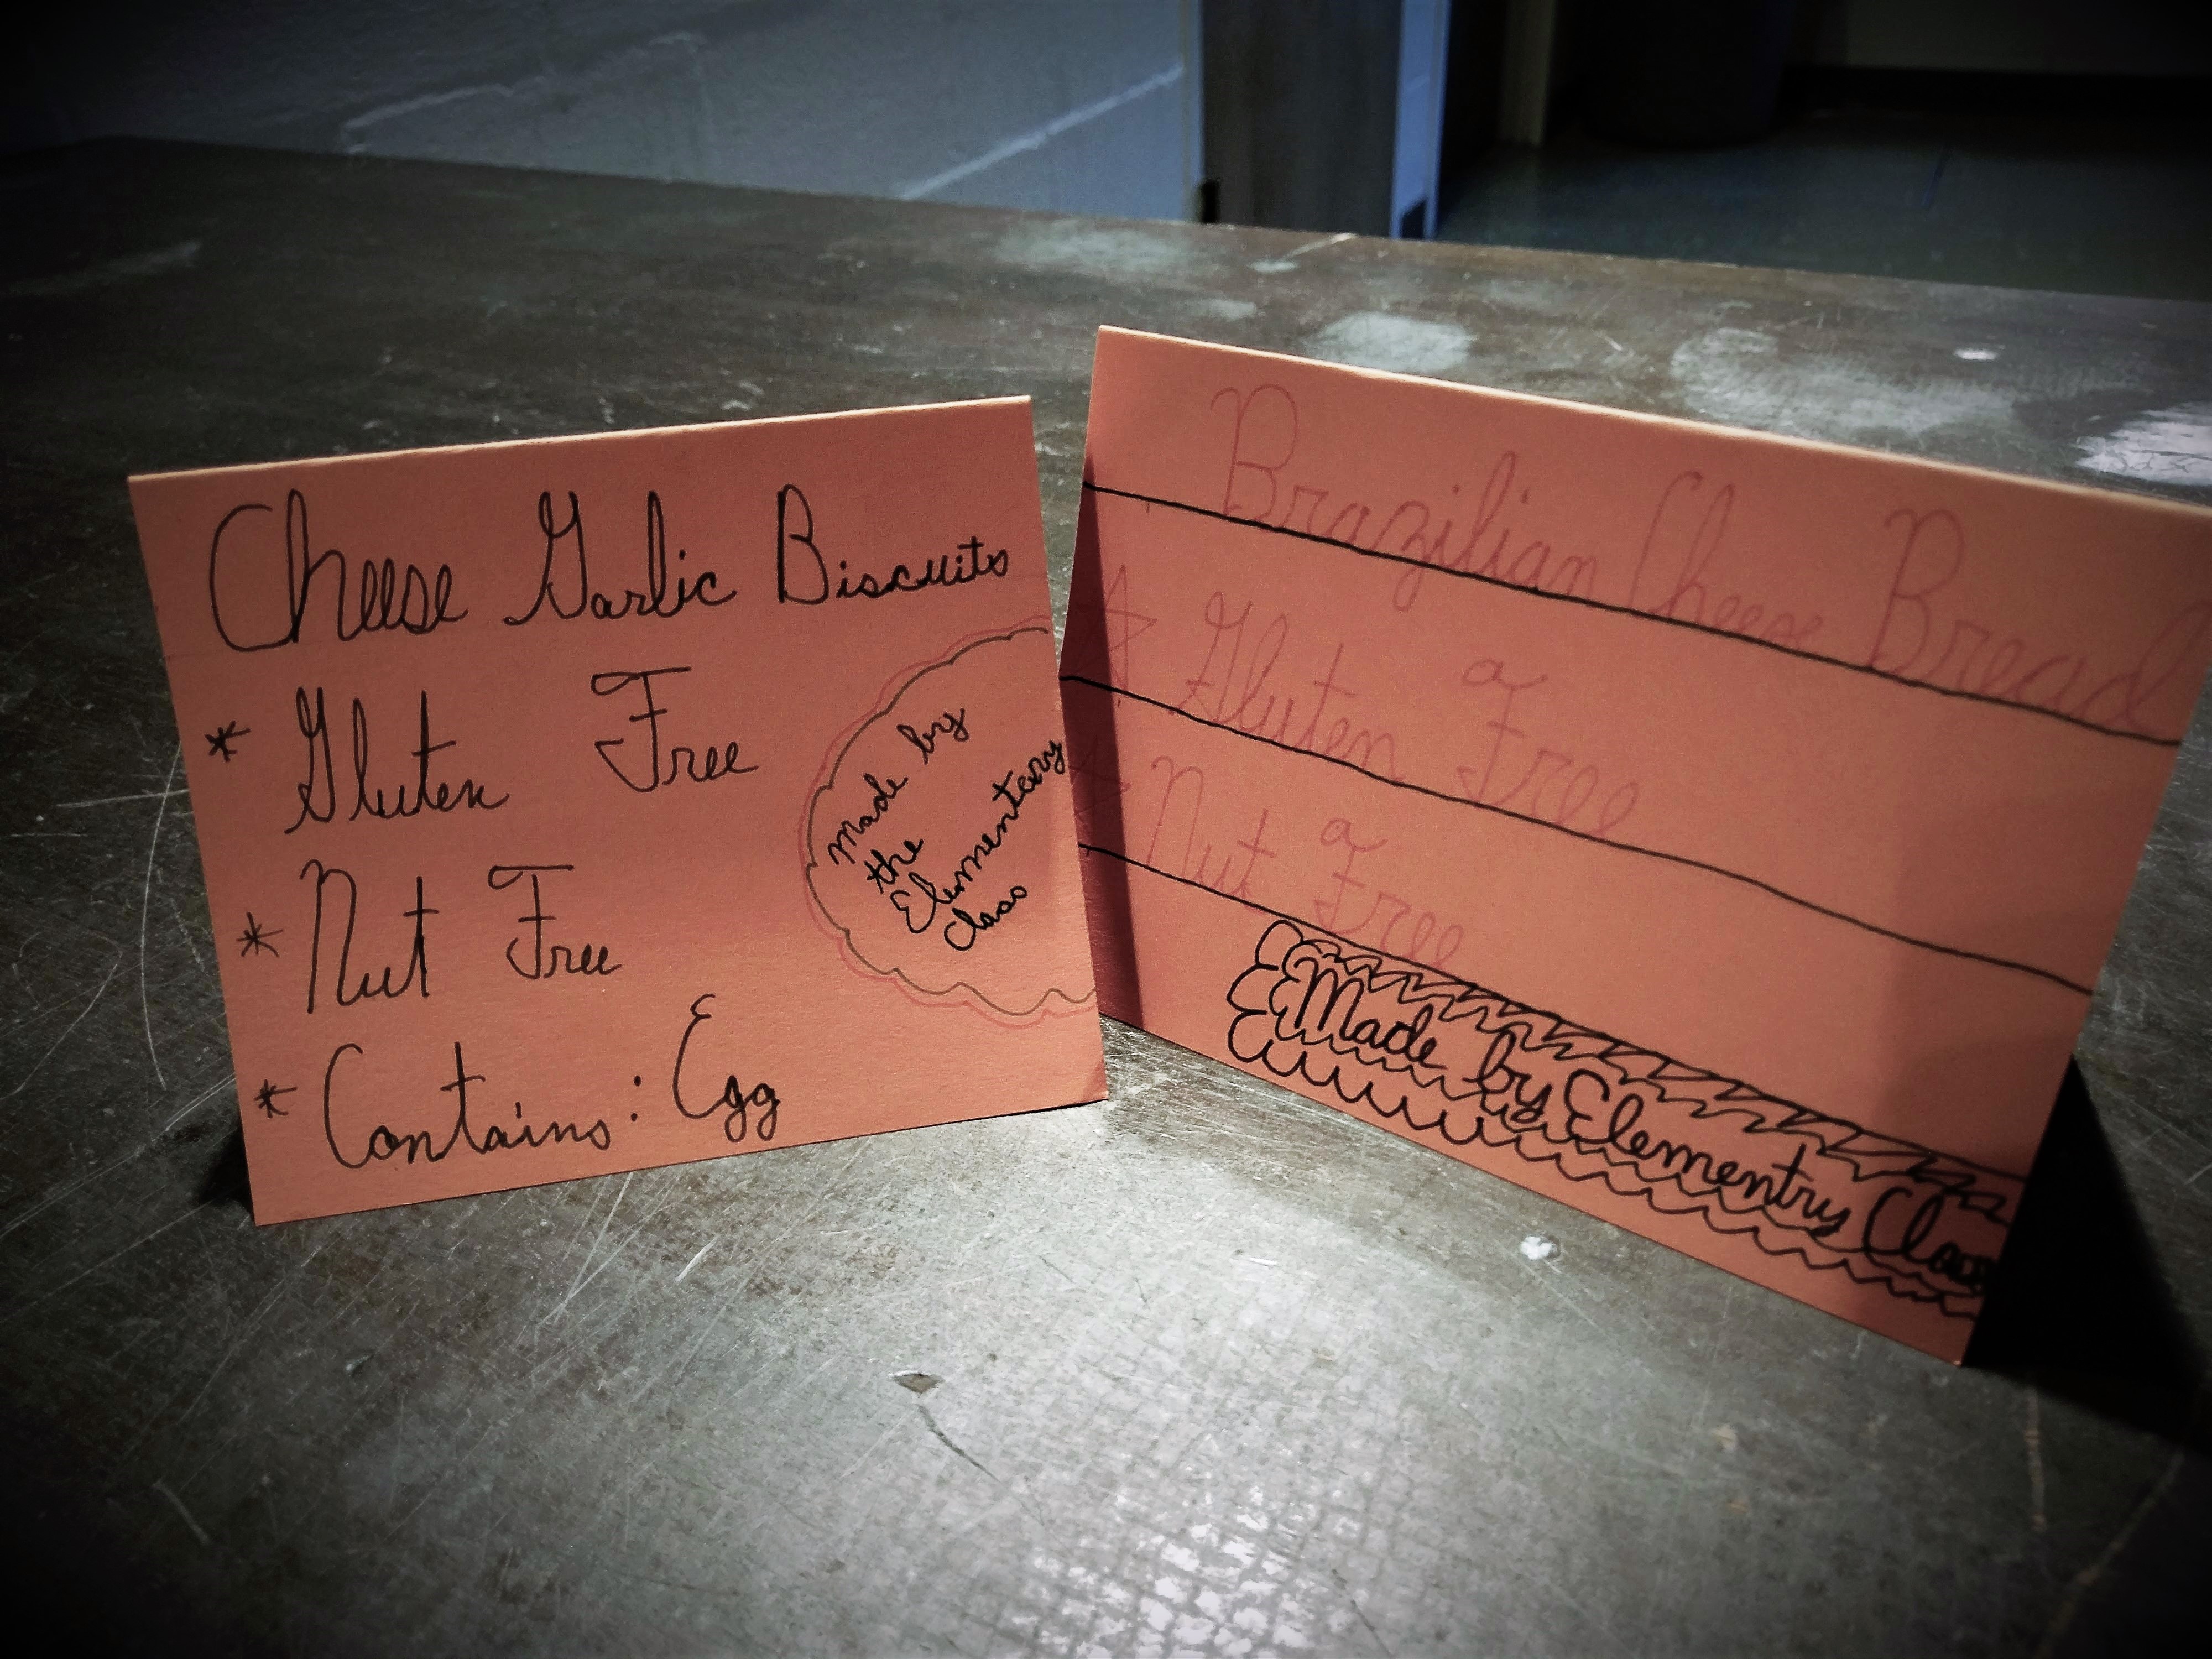 Cheese Garlic Biscuits
* Gluten Free
* Nut Free
* Contains: Egg
made by
the
Elementary
class
Brazilian Cheese Bread
☆ Gluten Free
☆ Nut Free
Made by Elementry Class